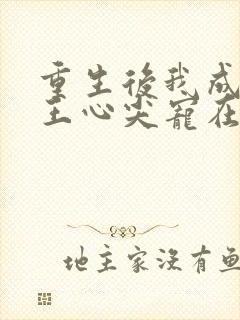 重生後我成
王心尖寵在
地主家沒有魚